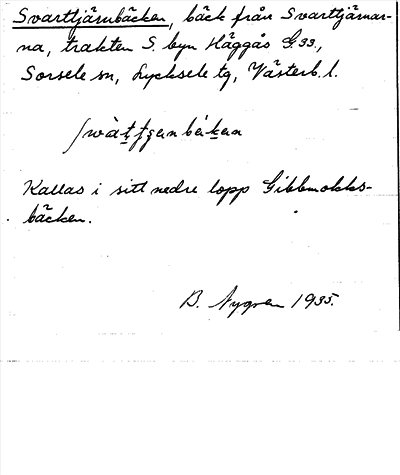 Svarttjärnbäcken, bäck från Svarttjärnar-
na, trakten S. byn Häggås G.33.,
Sorsele sn, Lycksele tg, Västerb. l.
Kallas i sitt nedre lopp Gibbmokks-
bäcken.
B. Nygren 1935.